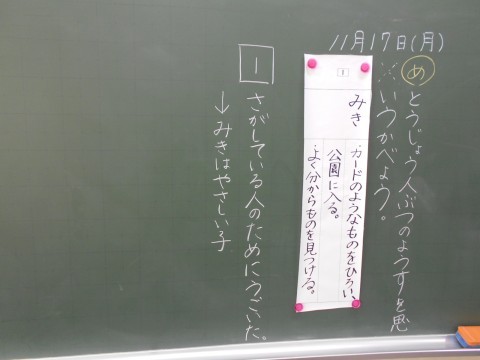 11月17日(月)
め とうじょう人ぶつのようすを思
いうかべよう。
1
みき
・カードのようなものをひろい、
公園に入る。
・よく分からものを見つける。
1
さがしている人のためにうごいた。
→みきはやさしい子